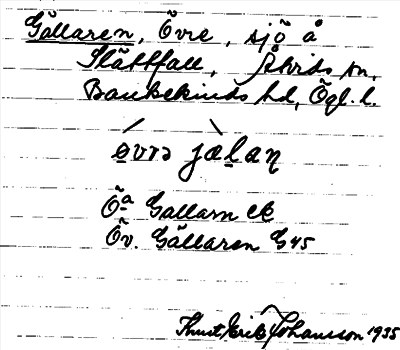 Gällaren, Övre, sjö å
Slättfall, Åtvids sn,
Bankekinds hd, Ögl. l.
øvrə jæḷaṇ
Öa Gallarn ek
Öv. Gällaren G45
Knut Erik Johansson 1935